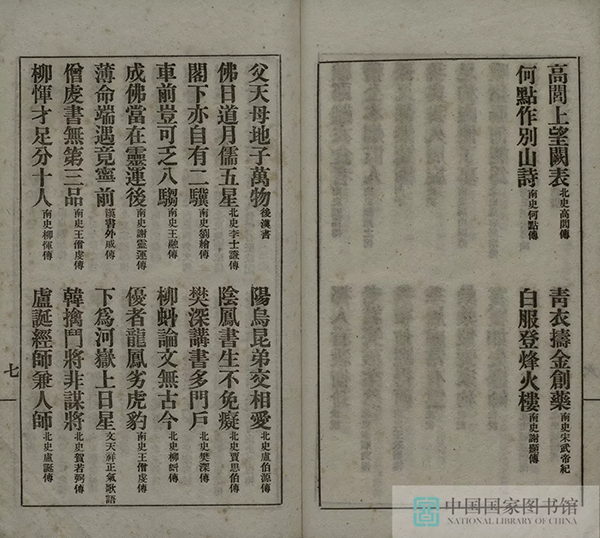 高閭上望闕表 北史高閭傳 青衣擣金創藥 南史宋武帝紀
何點作別山詩 南史何點傳 白服登烽火樓 南史謝顥傳
父天母地子萬物 後漢書 陽烏昆弟交相愛 北史盧伯源傳
佛日道月儒五星 北史李士謙傳 陰鳳書生不免癡 北史賈思伯傳
閣下亦自有二驥 南史劉繪傳 樊深講書多門戶 北史樊深傳
車前豈可乏八騶 南史王融傳 柳蚪論文無古今 北史柳蚪傳
成佛當在靈運後 南史謝靈運傳 優者龍鳳劣虎豹 南史王僧虔傳
薄命端遇竟寧前 漢書外戚傳 下爲河嶽上日星 文天祥正氣歌語
僧虔書無第三品 南史王僧虔傳 韓擒鬥將非謀將 北史賀若弼傳
柳惲才足分十人 南史柳惲傳 盧誕經師兼人師 北史盧誕傳
七
中国国家图书馆
NATIONAL LIBRARY OF CHINA